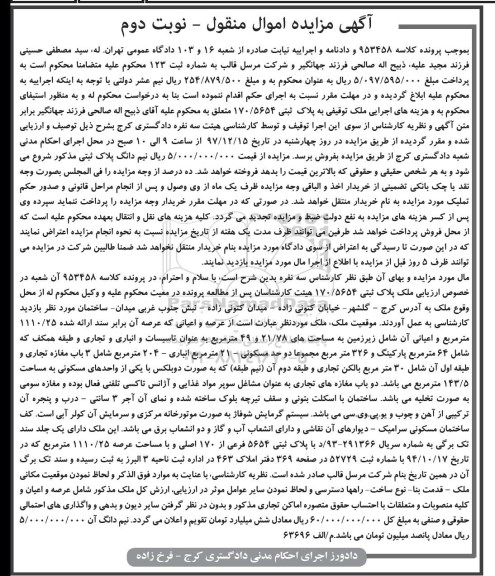 آگهی مزایده اموال منقول - نوبت دوم
بموجب پرونده کلاسه ۹۵۳۴۵۸ و دادنامه و اجراییه نیابت صادره از شعبه ۱۶ و ۱۰۳ دادگاه عمومی تهران. له، سید مصطفی حسینی
فرزند مجید علیه، ذبیح اله صالحی فرزند جهانگیر و شرکت مرسل قالب به شماره ثبت ۱۲۳ محکوم علیه متضامنا محکوم است به
پرداخت مبلغ ۵/۰۹۷/۵۹۵/۰۰۰ ریال به عنوان محکوم به و مبلغ ۲۵۴/۸۷۹/۵۰۰ ریال نیم عشر دولتی با توجه به اینکه اجراییه به
محکوم علیه ابلاغ گردیده و در مهلت مقرر نسبت به اجرای حکم اقدام ننموده است بنا به درخواست محکوم له و به منظور استیفای
محکوم به و هزینه های اجرایی ملک توقیفی به پلاک ثبتی ۱۷۰/۵۶۵۴ متعلق به محکوم علیه آقای ذبیح اله صالحی فرزند جهانگیر برابر
متن آگهی و نظریه کارشناس از سوی این اجرا توقیف و توسط کارشناسی هیئت سه نفره دادگستری کرج بشرح ذیل توصیف و ارزیابی
شده و مقرر گردیده از طریق مزایده در روز چهارشنبه در تاریخ ۹۷/۱۲/۱۵ از ساعت ۹ الی ۱۰ صبح در محل اجرای احکام مدنی
شعبه دادگستری کرج از طریق مزایده بفروش برسد. مزایده از قیمت ۵/۰۰۰/۰۰۰/۰۰۰ ریال نیم دانگ پلاک ثبتی مذکور شروع می
شود و به هر شخص حقیقی و حقوقی که بالاترین قیمت را بدهد فروخته خواهد شد. ده درصد از وجه مزایده را فی المجلس بصورت وجه
نقد یا چک بانکی تضمینی از خریدار اخذ و الباقی وجه مزایده ظرف یک ماه از وی وصول و پس از انجام مراحل قانونی و صدور حکم
تملیک مورد مزایده به نام خریدار منتقل خواهد شد. در صورتی که در مهلت مقرر خریدار وجه مزایده را پرداخت ننماید سپرده وی
پس از کسر هزینه های مزایده به نفع دولت ضبط و مزایده تجدید می گردد. کلیه هزینه های نقل و انتقال بعهده محکوم علیه است که
از محل فروش پرداخت خواهد شد طرفین می توانند ظرف مدت یک هفته از تاریخ مزایده نسبت به نحوه انجام مزایده اعتراض نمایند
که در این صورت تا رسیدگی به اعتراض از سوی دادگاه مورد مزایده بنام خریدار انتقال نخواهد شد ضمنا طالبین شرکت در مزایده می
توانند ظرف ۵ روز قبل از مزایده با اطلاع از اجرا مال مورد مزایده بازدید نمایند.
مال مورد مزایده و بهای آن طبق نظر کارشناس سه نفره بدین شرح است، با سلام و احترام، در پرونده کلاسه ۹۵۳۴۵۸ آن شعبه در
خصوص ارزیابی ملک پلاک ثبتی ۱۷۰/۵۶۵۴ هیئت کارشناسان پس از مطالعه پرونده در معیت محکوم علیه و وکیل محکوم له از محل
وقوع ملک به آدرس کرج - گلشهر- خیابان کتونی زاده - میدان کتونی زاده - نبش جنوب غربی میدان- ساختمان مورد نظر بازدید
کارشناسی به عمل آوردند. موقعیت ملک، ملک موردنظر عبارت است از عرصه و اعیانی که عرصه آن برابر سند ارائه شده ۱۱۱۰/۲۵
مترمربع و اعیانی آن شامل زیرزمین به مساحت های ۲۱/۷۸ و ۴۹ مترمربع به عنوان تاسیسات و انباری و تجاری و طبقه همکف که
شامل ۶۴ مترمربع پارکینگ و ۳۲۶ متر مربع مجموعا دو حد مسکونی - ۲۱ مترمربع انباری - ۲۰۴ مترمربع شامل ۳ باب مغازه تجاری و
طبقه اول آن شامل ۳۰ متر مربع بالکن تجاری و طبقه دوم آن (نیم طبقه) که به صورت دوبلکس با یکی از واحدهای مسکونی به مساحت
۱۴۳/۵ مترمربع می باشد. دو باب مغازه های تجاری به عنوان مشاغل سوپر مواد غذایی و آژانس تاکسی تلفنی فعال بوده و مغازه سومی
به صورت تخلیه می باشد. ساختمان با اسکلت بتونی و سقف تیرچه بلوک ساخته شده و نمای آن آجر ۳ سانتی - درب و پنجره آن
ترکیبی از آهن و چوب و یو.پی.وی.سی می باشد. سیستم گرمایش شوفاژ به صورت موتورخانه مرکزی و سرمایش آن کولر آبی است. کف
ساختمان مسکونی سرامیک - دیوارهای آن نقاشی و دارای انشعاب آب و گاز و دو انشعاب برق می باشد. این ملک دارای یک جلد سند
تک برگی به شماره سریال ۲۹۱۳۶۶-۹۳/د با پلاک ثبتی ۵۶۵۴ فرعی از ۱۷۰ اصلی و با مساحت عرصه ۱۱۱۰/۲۵ مترمربع که در
تاریخ ۹۴/۱۰/۱۷ با شماره ثبت ۵۲۷۲۹ در صفحه ۳۶۹ دفتر املاک ۴۶۳ در اداره ثبت ناحیه ۳ البرز به ثبت رسیده و سند تک برگ
آن در همین تاریخ بنام شرکت مرسل قالب صادر شده است. نظریه کارشناسی، با عنایت به موارد فوق الذکر و لحاظ نمودن موقعیت مکانی
ملک - قدمت بنا- نوع ساخت- راهها دسترسی و لحاظ نمودن سایر عوامل موثر در ارزیابی، ارزش کل ملک مذکور شامل عرصه و اعیان و
کلیه منصوبات و متعلقات با احتساب حقوق متصوره اماکن تجاری مذکور و بدون در نظر گرفتن سایر دیون و بدهی و واگذاری های احتمالی
حقوقی و صنفی به مبلغ کل ۶۰/۰۰۰/۰۰۰/۰۰۰ ریال معادل شش میلیارد تومان تقویم و اعلان می گردد. نیم دانگ آن ۵/۰۰۰/۰۰۰/۰۰۰
ریال معادل پانصد میلیون تومان می باشد.م/الف ۶۳۶۹۶
دادورز اجرای احکام مدنی دادگستری کرج - فرخ زاده